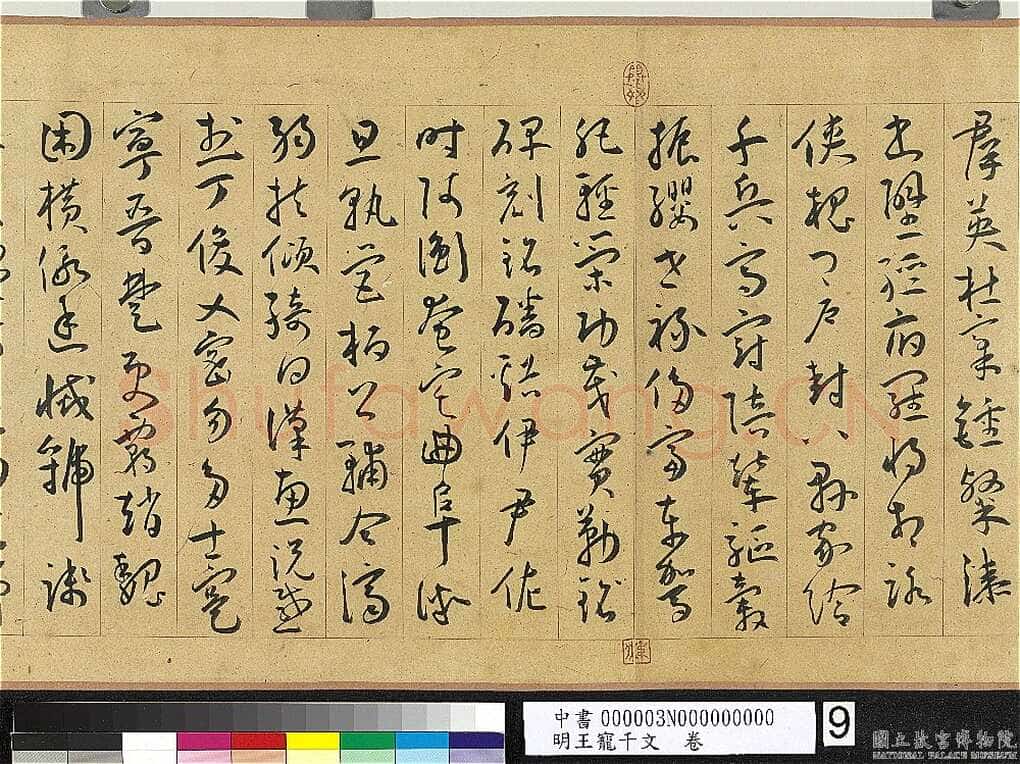 羣英杜稾鍾隸漆
書壁經府羅將相路
俠槐卿戶封八縣家給
千兵高冠陪輦驅轂
振纓世祿侈富車駕
肥輕策功茂實勒銘
碑刻銘磻溪伊尹佐
時阿衡奄宅曲阜微
旦孰營桓公輔合濟
弱扶傾綺迴漢惠說感
武丁俊乂密勿多士寔
寧晉楚更霸趙魏
困橫假途滅虢踐
Shufawang.CN
中書 000003N000000000
明王寵千文 卷
9
國立故宮博物院
NATIONAL PALACE MUSEUM